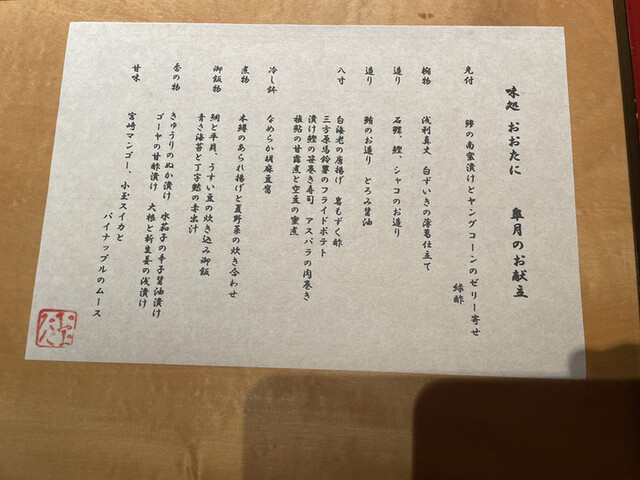 味処 おおたに 皐月のお献立
先付 鯵の南蛮漬けとヤングコーンのゼリー寄せ
緑酢
椀物 浅利真丈 白ずいきの海葛仕立て
造り 石鯛、鰹、シャコのお造り
造り 鮪のお造り とろみ醤油
八寸 白海老の唐揚げ 岩もずく酢
三方原馬鈴薯のフライドポテト
漬け鰹の笹巻き寿司 アスパラの肉巻き
稚鮎の甘露煮と空豆の蜜煮
冷し鉢 なめらか胡麻豆腐
煮物 本鱒のあられ揚げと夏野菜の炊き合わせ
御飯物 鯛と平貝、うすい豆の炊き込み御飯
青さ海苔と丁字麩の赤出汁
香の物 きゅうりのぬか漬け 水茄子の辛子醤油漬け
ゴーヤの甘酢漬け 大根と新生姜の浅漬け
甘味 宮崎マンゴー、小玉スイカと
パイナップルのムース
おおたに